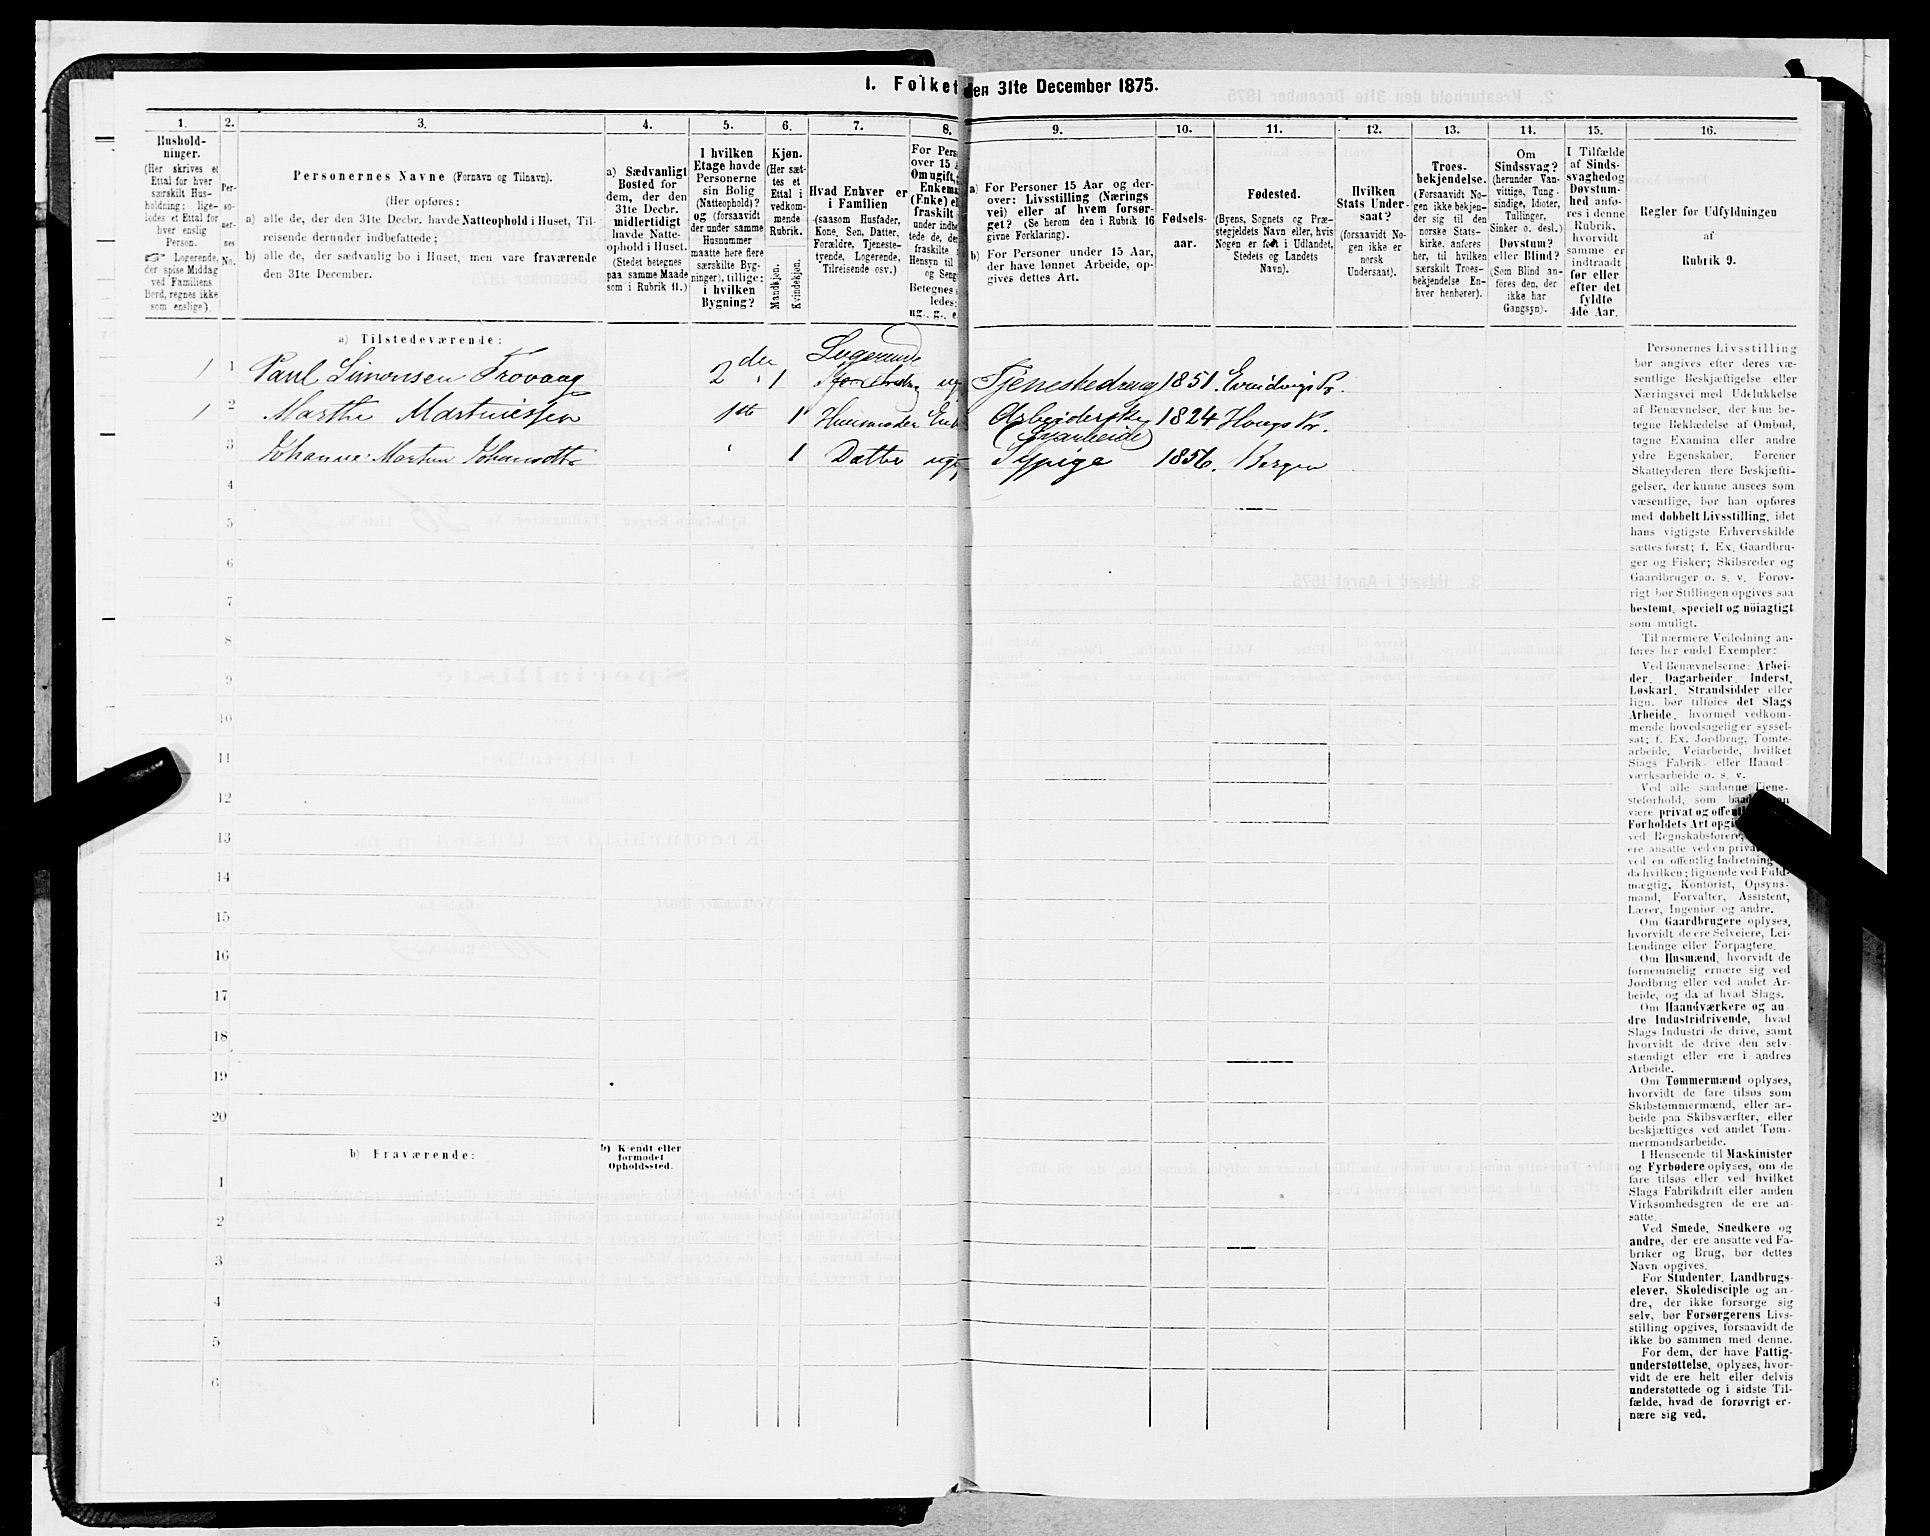 1. Folket
en 31te December 1875.
1.
Hushold-
ninger.
(Her skrives et
Ettal for hver
særskilt Hus-
holdning; lige-
ledes et Ettal for
hver enslig
Person.
Logerende,
der spise Middag
ved Familiens
Bord, regnes ikke
som enslige).
2.
Per-
so-
ner-
nes
No.
3.
Personernes Navne (Fornavn og Tilnavn).
(Her opføres:
a) alle de, der den 31te Decbr. havde Natteophold i Huset, Til-
reisende derunder indbefattede;
b) alle de, der sædvanlig bo i Huset, men vare fraværende
den 31te December.
4.
a) Sædvanligt
Bosted for
dem, der den
31te Decbr.
midlertidigt
havde Natte-
ophold i Huset.
(Stedet betegnes
paa samme Maade
som i Rubrik 11.)
5.
I hvilken
Etage havde
Personerne
sin Bolig
(Natteophold)?
og (forsaavidt
der under samme
Husnummer
maatte høre flere
særskilte Byg-
ninger), tillige:
i hvilken
Bygning?
6.
Kjøn.
(Her sæt-
tes et
Ettal i
vedkom-
mende
Rubrik.
Mandkjøn.
Kvindekjøn.
7.
Hvad Enhver er
i Familien
(saasom Husfader,
Kone, Søn, Datter,
Forældre, Tjeneste-
tyende, Logerende,
Tilreisende osv.)
8.
For Pers
over 15 A
Om ugift,
Enkema
(Enke) el
fraskilt
under indbe
tede de, de
fraskilte
Hensyn til
og Seng
Betegnes
ledes:
ug., g., e
9.
a) For Personer 15 Aar og der-
over: Livsstilling (Nærings
vei) eller af hvem forsør-
get? (Se herom den i Rubrik 16
givne Forklaring).
b) For Personer under 15 Aar,
der have lønnet Arbeide, op-
gives dettes Art.
10.
Fødsels-
aar.
11.
Fødested.
(Byens, Sognets og Præ-
stegjeldets Navn eller, hvis
Nogen er født i Udlandet,
Stedets og Landets
Navn).
12.
Hvilken
Stats Under-
saat?
(forsaavidt No-
gen ikke er
norsk
Undersaat).
13.
Troes-
bekjendelse.
(Forsaavidt No-
gen ikke bekjen-
der sig til den
norske Stats-
kirke, anføres
her, til hvilken
særskilt Troes-
bekjendelse En-
hver henhører).
14.
Om
Sindssvag?
(herunder Van-
vittige, Tung-
sindige, Idioter,
Tullinger,
Sinker o. desl.)
Døvstum?
eller Blind?
(Som Blind an-
føres den, der
ikke har
Gangsyn).
15.
I Tilfælde
af Sinds-
svaghed og
Døvstum-
hed anfø-
res i denne
Rubrik,
hvorvidt
samme er
indtraadt
før eller
efter det
fyldte
4de Aar.
16.
Regler for Udfyldningen
af
Rubrik 9.
a) Tilstedeværende:
1 1 Paul Simonsen Trovaag 2 den 1 Logerende ug Tjenestedreng 1851. Evindvigs Pr.
1 2 Marthe Martinessen 1ste 1 Huusmoder Enk Arbeiderske 1824 Hougs Pr.
3 Johanne Martine Johansdtr " 1 Datter ug Sypige 1856. Bergen
4
5
6
7
8
9
10
11
12
13
14
15
16
17
18
19
20
b) Fraværende:
b) Kjendt eller
formodet
Opholdssted.
1
2
3
4
5
6
Personernes Livsstilling
bør angives efter deres væ-
sentlige Beskjæftigelse eller
Næringsvei med Udelukkelse
af Benævnelser, der kun be-
tegne Beklædelse af Ombud,
tagne Examina eller andre
ydre Egenskaber. Forener
Skatteyderen flere Beskjæfti-
gelser, der kunne ansees som
væsentlige, bør han opføres
med dobbelt Livsstilling, idet
hans vigtigste Erhvervskilde
sættes først; f. Ex. Gaardbru-
ger og Fisker; Skibsreder og
Gaardbruger o. s. v. Forøv-
rigt bør Stillingen opgives saa
bestemt, specielt og nöiagtigt
som muligt.
Til nærmere Veiledning an-
føres her endel Exempler:
Ved Benævnelserne: Arbei-
der, Dagarbeider, Inderst,
Løskarl, Strandsidder eller
lign. bør tilføies det Slags
Arbeide, hvormed vedkom-
mende hovedsagelig er syssel-
sat; f. Ex. Jordbrug, Tomte-
arbeide, Veiarbeide, hvilket
Slags Fabrik- eller Haand
værksarbeide o. s. v.
Ved alle saadanne Tjene-
steforhold, som baade
være privat og offent
Forholdets Art opgi
ved Regnskabsførere,
ere ansatte ved en priva
ved en offentlig Indretning
da hvilken; lignende ved Fuld-
mægtig, Kontorist, Opsyns-
mand, Forvalter, Assistent,
Lærer, Ingeniør og andre.
Om Gaardbrugere oplyses,
hvorvidt de ere Selveiere, Lei-
lændinge eller Forpagtere.
Om Husmænd, hvorvidt de
fornemmelig ernære sig ved
Jordbrug eller ved andet Ar-
beide, og da af hvad Slags.
Om Haandværkere og an
dre Industridrivende, hvad
Slags Industri de drive, samt
hvorvidt de drive den selv-
stændigt eller ere i andres
Arbeide.
Om Tømmermænd oplyses,
hvorvidt de fare tilsøs som
Skibstømmermænd, eller ar-
beide paa Skibsværfter, eller
beskjæftiges ved andet Tøm-
mermandsarbeide.
I Henseende til Maskinister
og Fyrbødere oplyses, om de
fare tilsøs eller ved hvilket
Slags Fabrikdrift eller anden
Virksomhedsgren de ere an-
satte.
Ved Smede, Snedkere og
andre, der ere ansatte ved Fa-
briker og Brug, bør dettes
Navn opgives.
For Studenter, Landbrugs-
elever, Skoledisciple og an-
dre, der ikke forsørge sig
selv, bør Forsørgerens Livs-
stilling opgives, forsaavidt de
ikke bo sammen med denne.
For dem, der have Fattig-
understøttelse, oplyses, hvor-
vidt de ere helt eller delvis
understøttede og i sidste Til-
fælde, hvad de forøvrigt er-
nære sig ved.